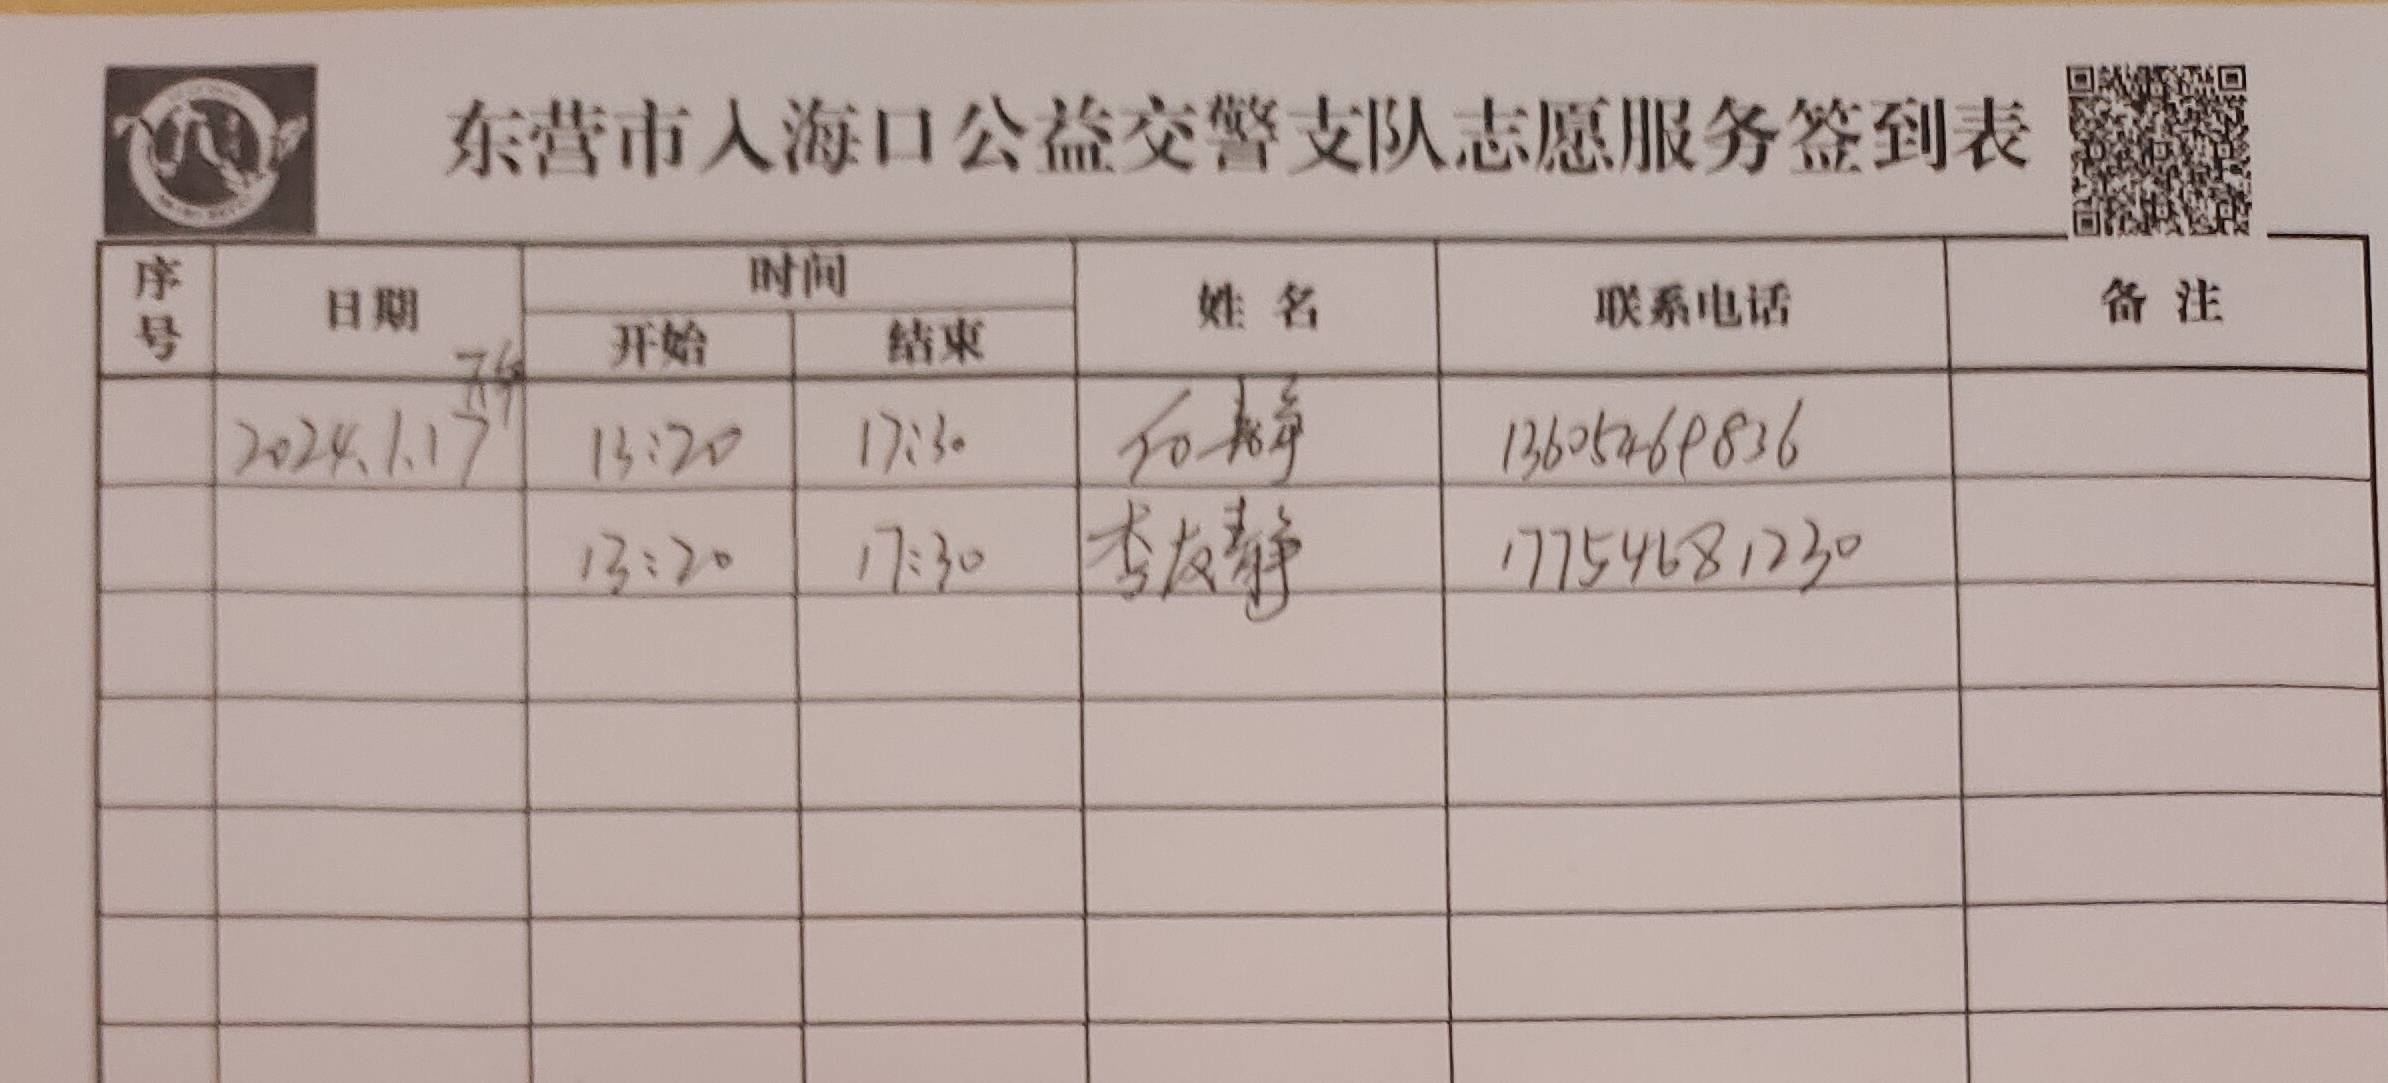 东营市入海口公益交警支队志愿服务签到表
序号 日期 时间 姓名 联系电话 备注
开始 结束
2024.1.17 13:20 17:30 静 13605469836
13:20 17:30 李友静 17754681230